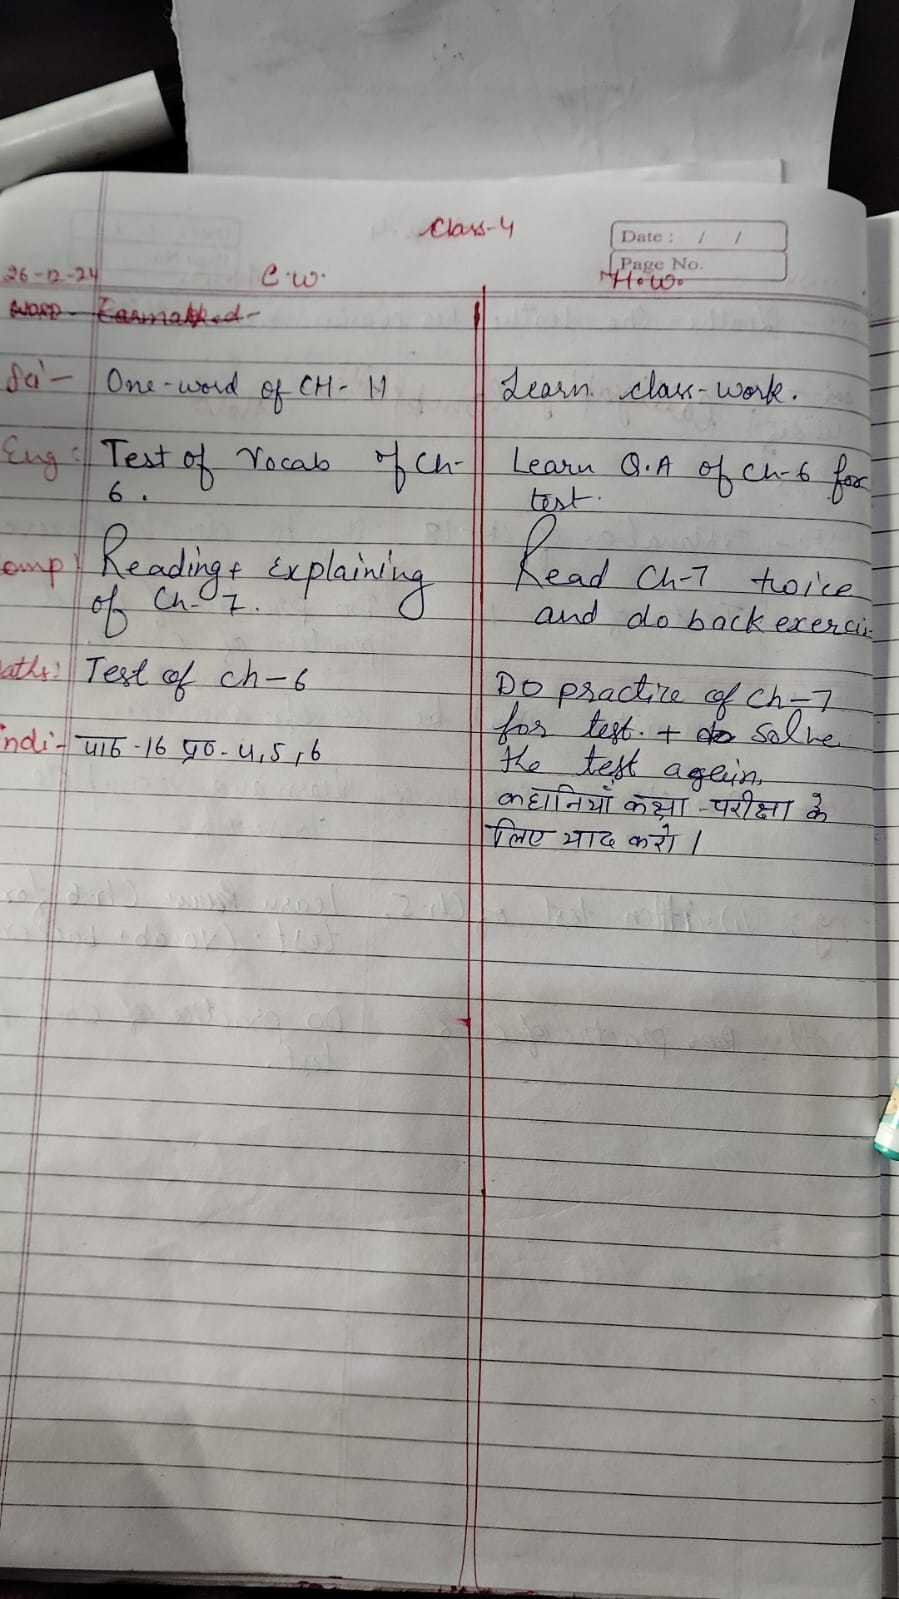 Class-4
Date : / /
Page No.
26-12-24 C.W. H.W.
WORD - Earmarked -
Sci - One-word of CH- 11 Learn class-work.
Eng: Test of Vocab of Ch- Learn Q.A of Ch-6 for
6. test.
omp: Reading + Explaining Read Ch-7 twice
of Ch-7. and do back exercis
aths: Test of ch-6 Do practice of Ch-7
for test. + do solve
indi- पाठ -16 प्र०- 4,5,6 the test again.
कहानियाँ कक्षा - परीक्षा के
लिए याद करो।